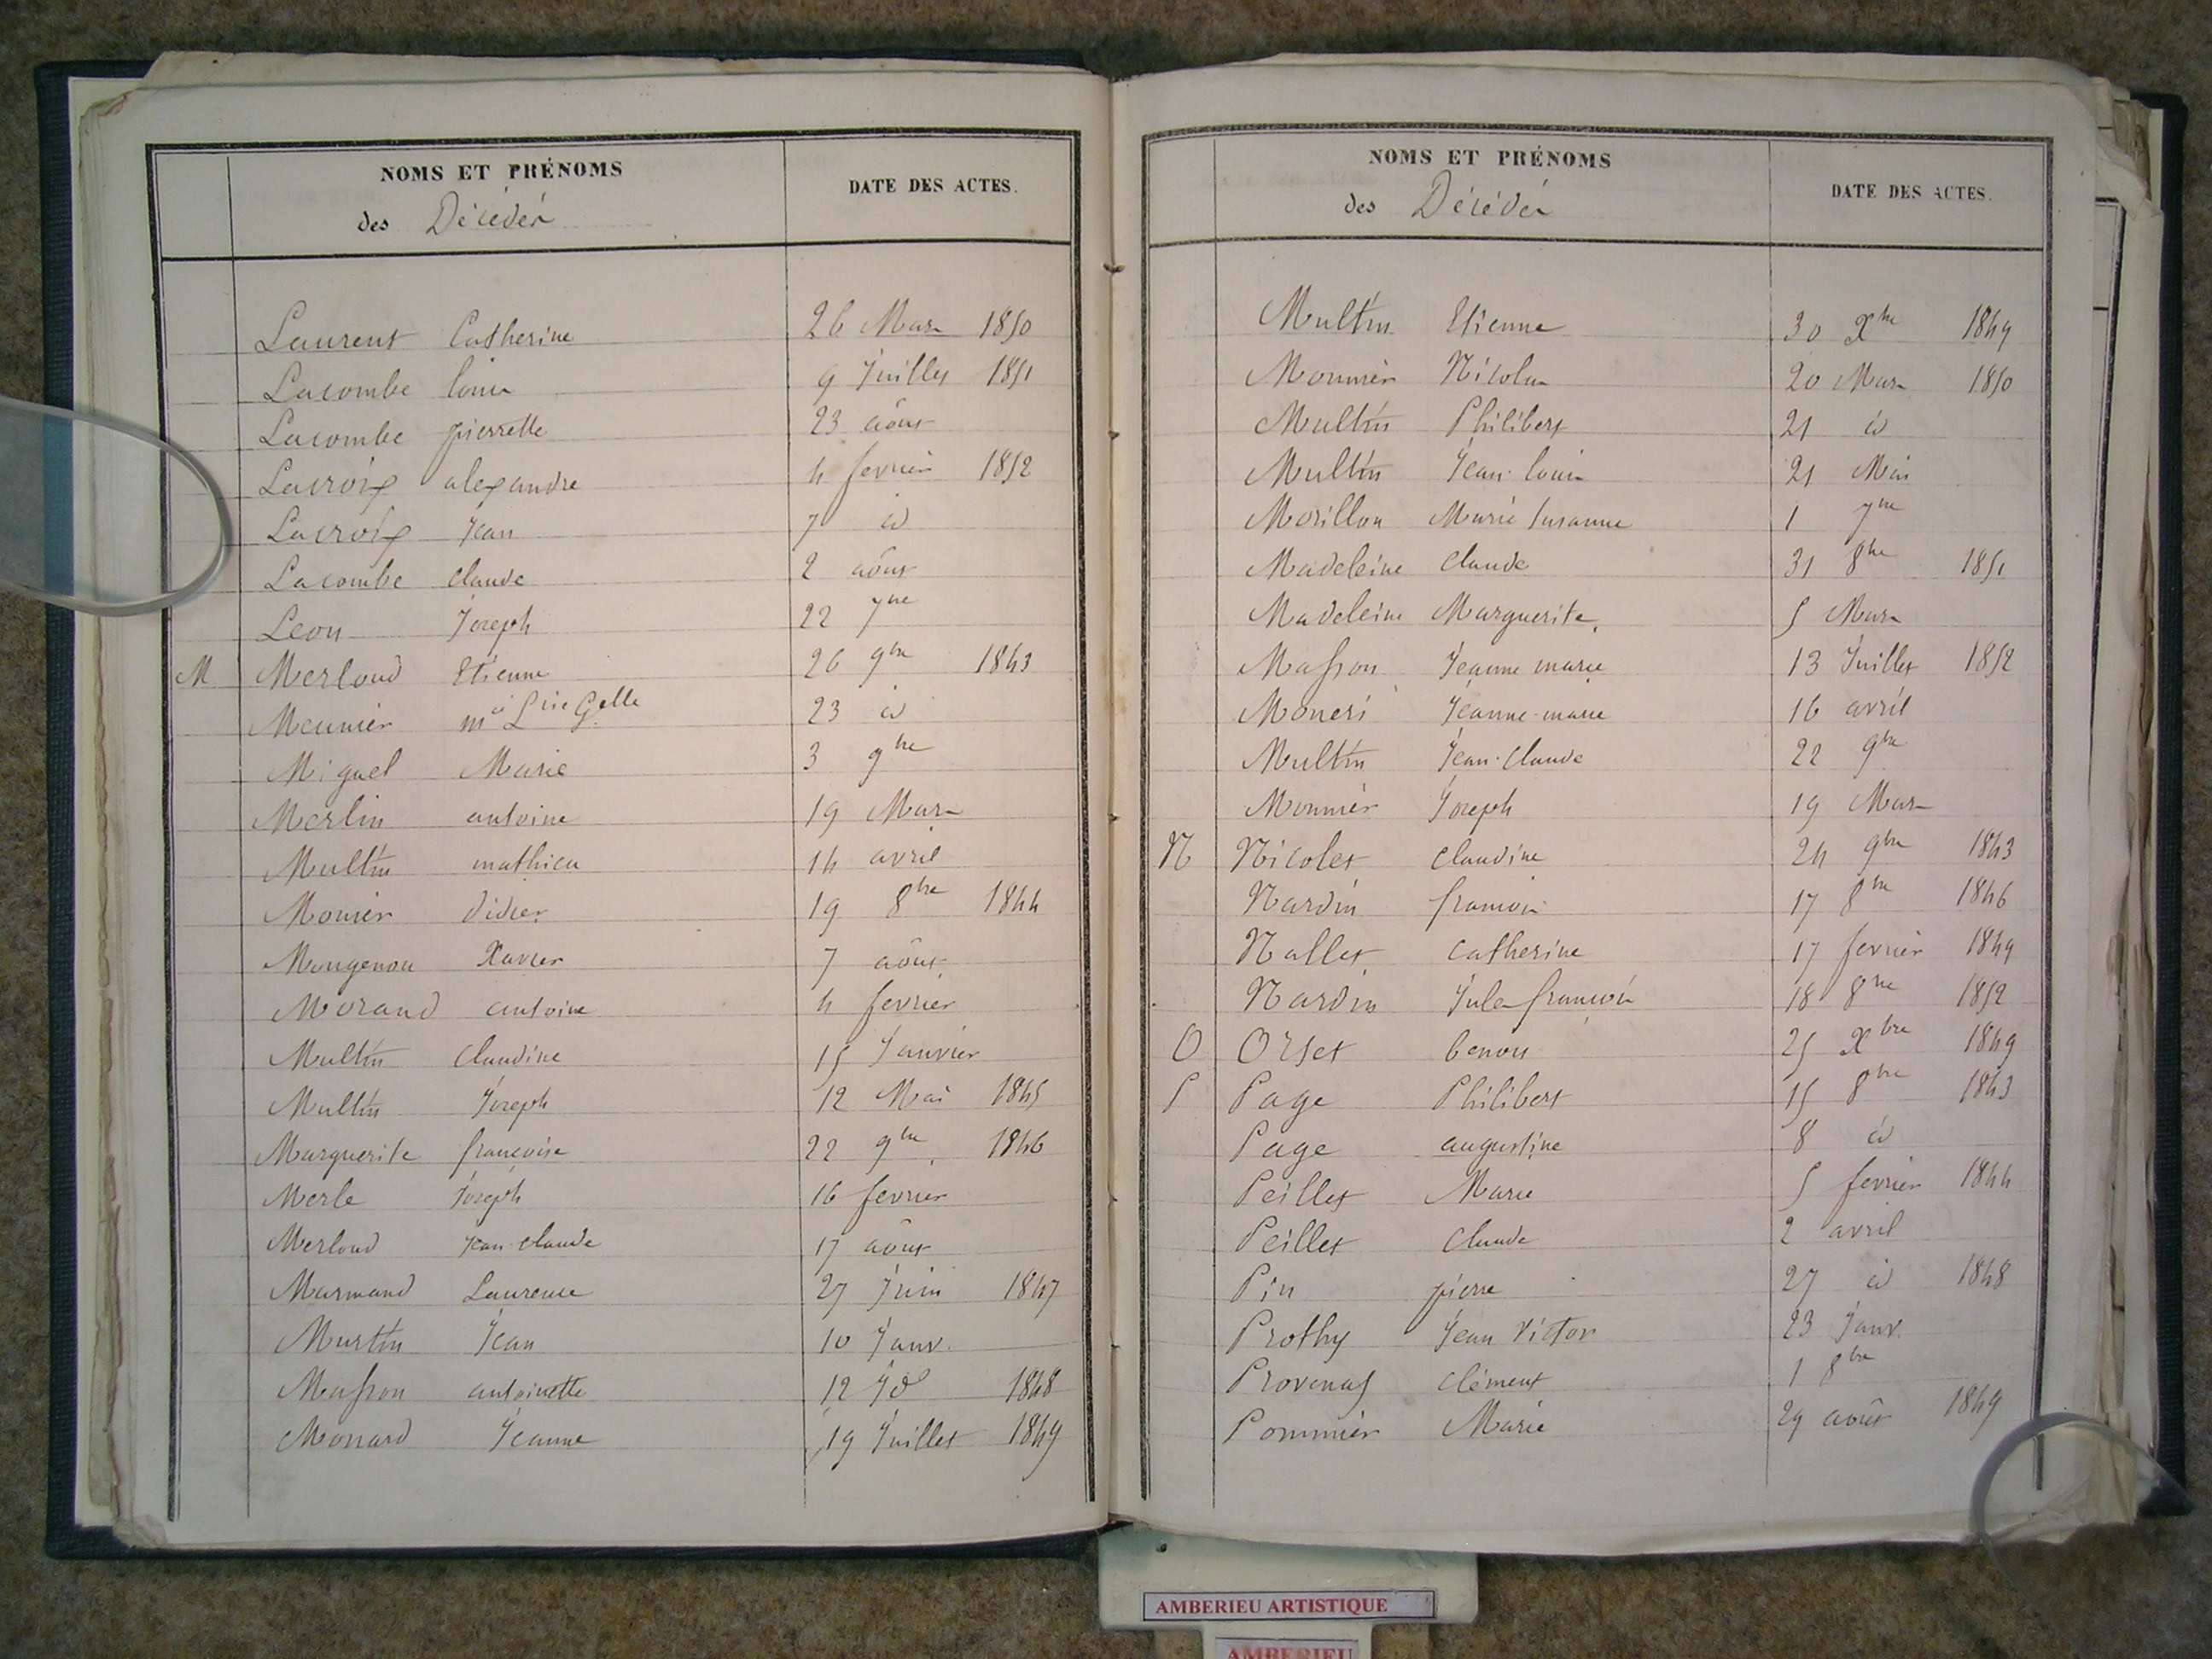 NOMS ET PRÉNOMS
des Décédés
DATE DES ACTES.
Laurent Catherine 26 Mars 1850
Lacombe louis 9 Juillet 1851
Lacombe pierrette 23 aôut
Lacroix alexandre 4 fevrier 1852
Lacroix Jean 7 id
Lacombe Claude 2 aôut
Leon Joseph 22 7bre
M Merloud Etienne 26 9bre 1843
Meunier 23 id
Miguel Marie 3 9bre
Merlin antoine 19 Mars
Multin mathieu 14 avril
Monier didier 19 8bre 1844
Mongenon Xavier 7 aôut
Morand antoine 4 fevrier
Multin Claudine 15 Janvier
Multin Joseph 12 Mai 1845
Marguerite françoise 22 9bre 1846
Merle Joseph 16 fevrier
Merloud Jean-Claude 17 aôut
Marmand Laurence 27 Juin 1847
Murtin Jean 10 Janv.
Masson antoinette 12 1848
Monard Jeanne 19 Juillet 1849
NOMS ET PRÉNOMS
des Décédés
DATE DES ACTES.
Multin Etienne 30 Xbre 1849
Monnier Nicolas 20 Mars 1850
Multin Philibert 21 id
Multin Jean-louis 21 Mai
Morillon Marie Susanne 1 7bre
Madeleine Claude 31 8bre 1851
Madeleine Marguerite 5 Mars
Masson Jeanne marie 13 Juillet 1852
Moneri Jeanne-marie 16 avril
Multin Jean-Claude 22 9bre
Monnier Joseph 19 Mars
N Nicolet Claudine 24 9bre 1843
Nardin francois 17 8bre 1846
Nallet Catherine 17 fevrier 1849
Nardin Jules françois 18 8bre 1852
O Orset benoit 25 Xbre 1849
P Page Philibert 15 8bre 1843
Page augustine 8 id
Peillet Marie 5 fevrier 1844
Peillet Claude 2 avril
Pin pierre 27 id 1848
Prothy Jean Victor 23 Janv.
Provenas Clément 1 8bre
Pommier Marie 29 août 1849
AMBERIEU ARTISTIQUE
AMBERIEU